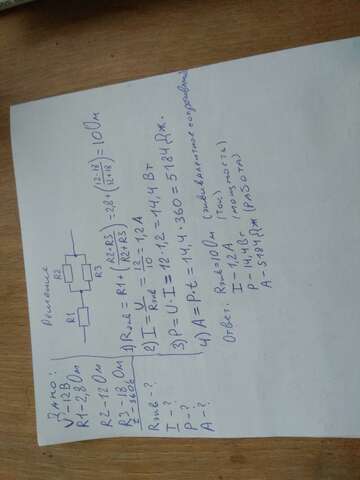 Дано:
U-12В
R1-2,8 Ом
R2-12 Ом
R3-18 Ом
t-360с
Rэкв-?
I-?
P-?
A-?
Решение
R1
R2
R3
1) Rэкв = R1 + (R2·R3/R2+R3) = 2,8 + (12·18/12+18) = 10 Ом
2) I = U/Rэкв = 12/10 = 1,2 А
3) P = U·I = 12·1,2 = 14,4 Вт
4) A = P·t = 14,4·360 = 5184 Дж.
Ответ: Rэкв = 10 Ом (эквивалентное сопротивление)
I - 1,2 А (ток)
P - 14,4 Вт (мощность)
A - 5184 Дж (работа)